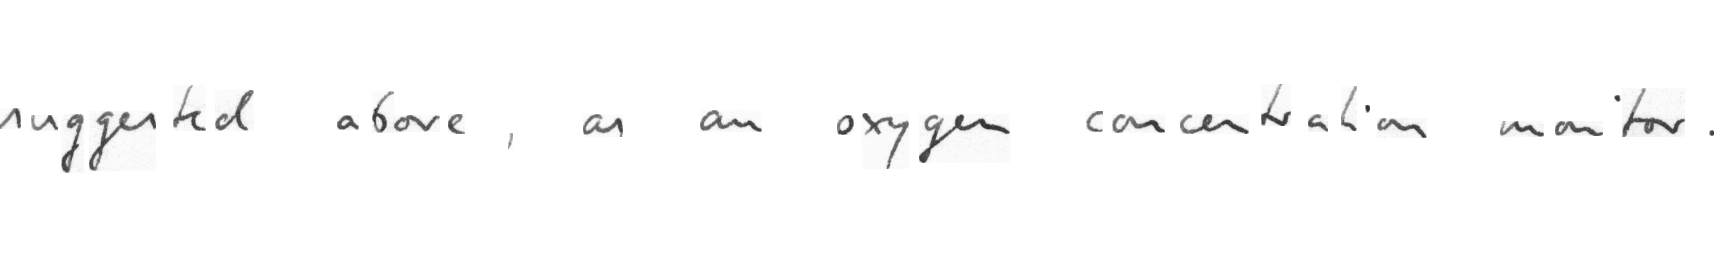 suggested above, as an oxygen concentration monitor.